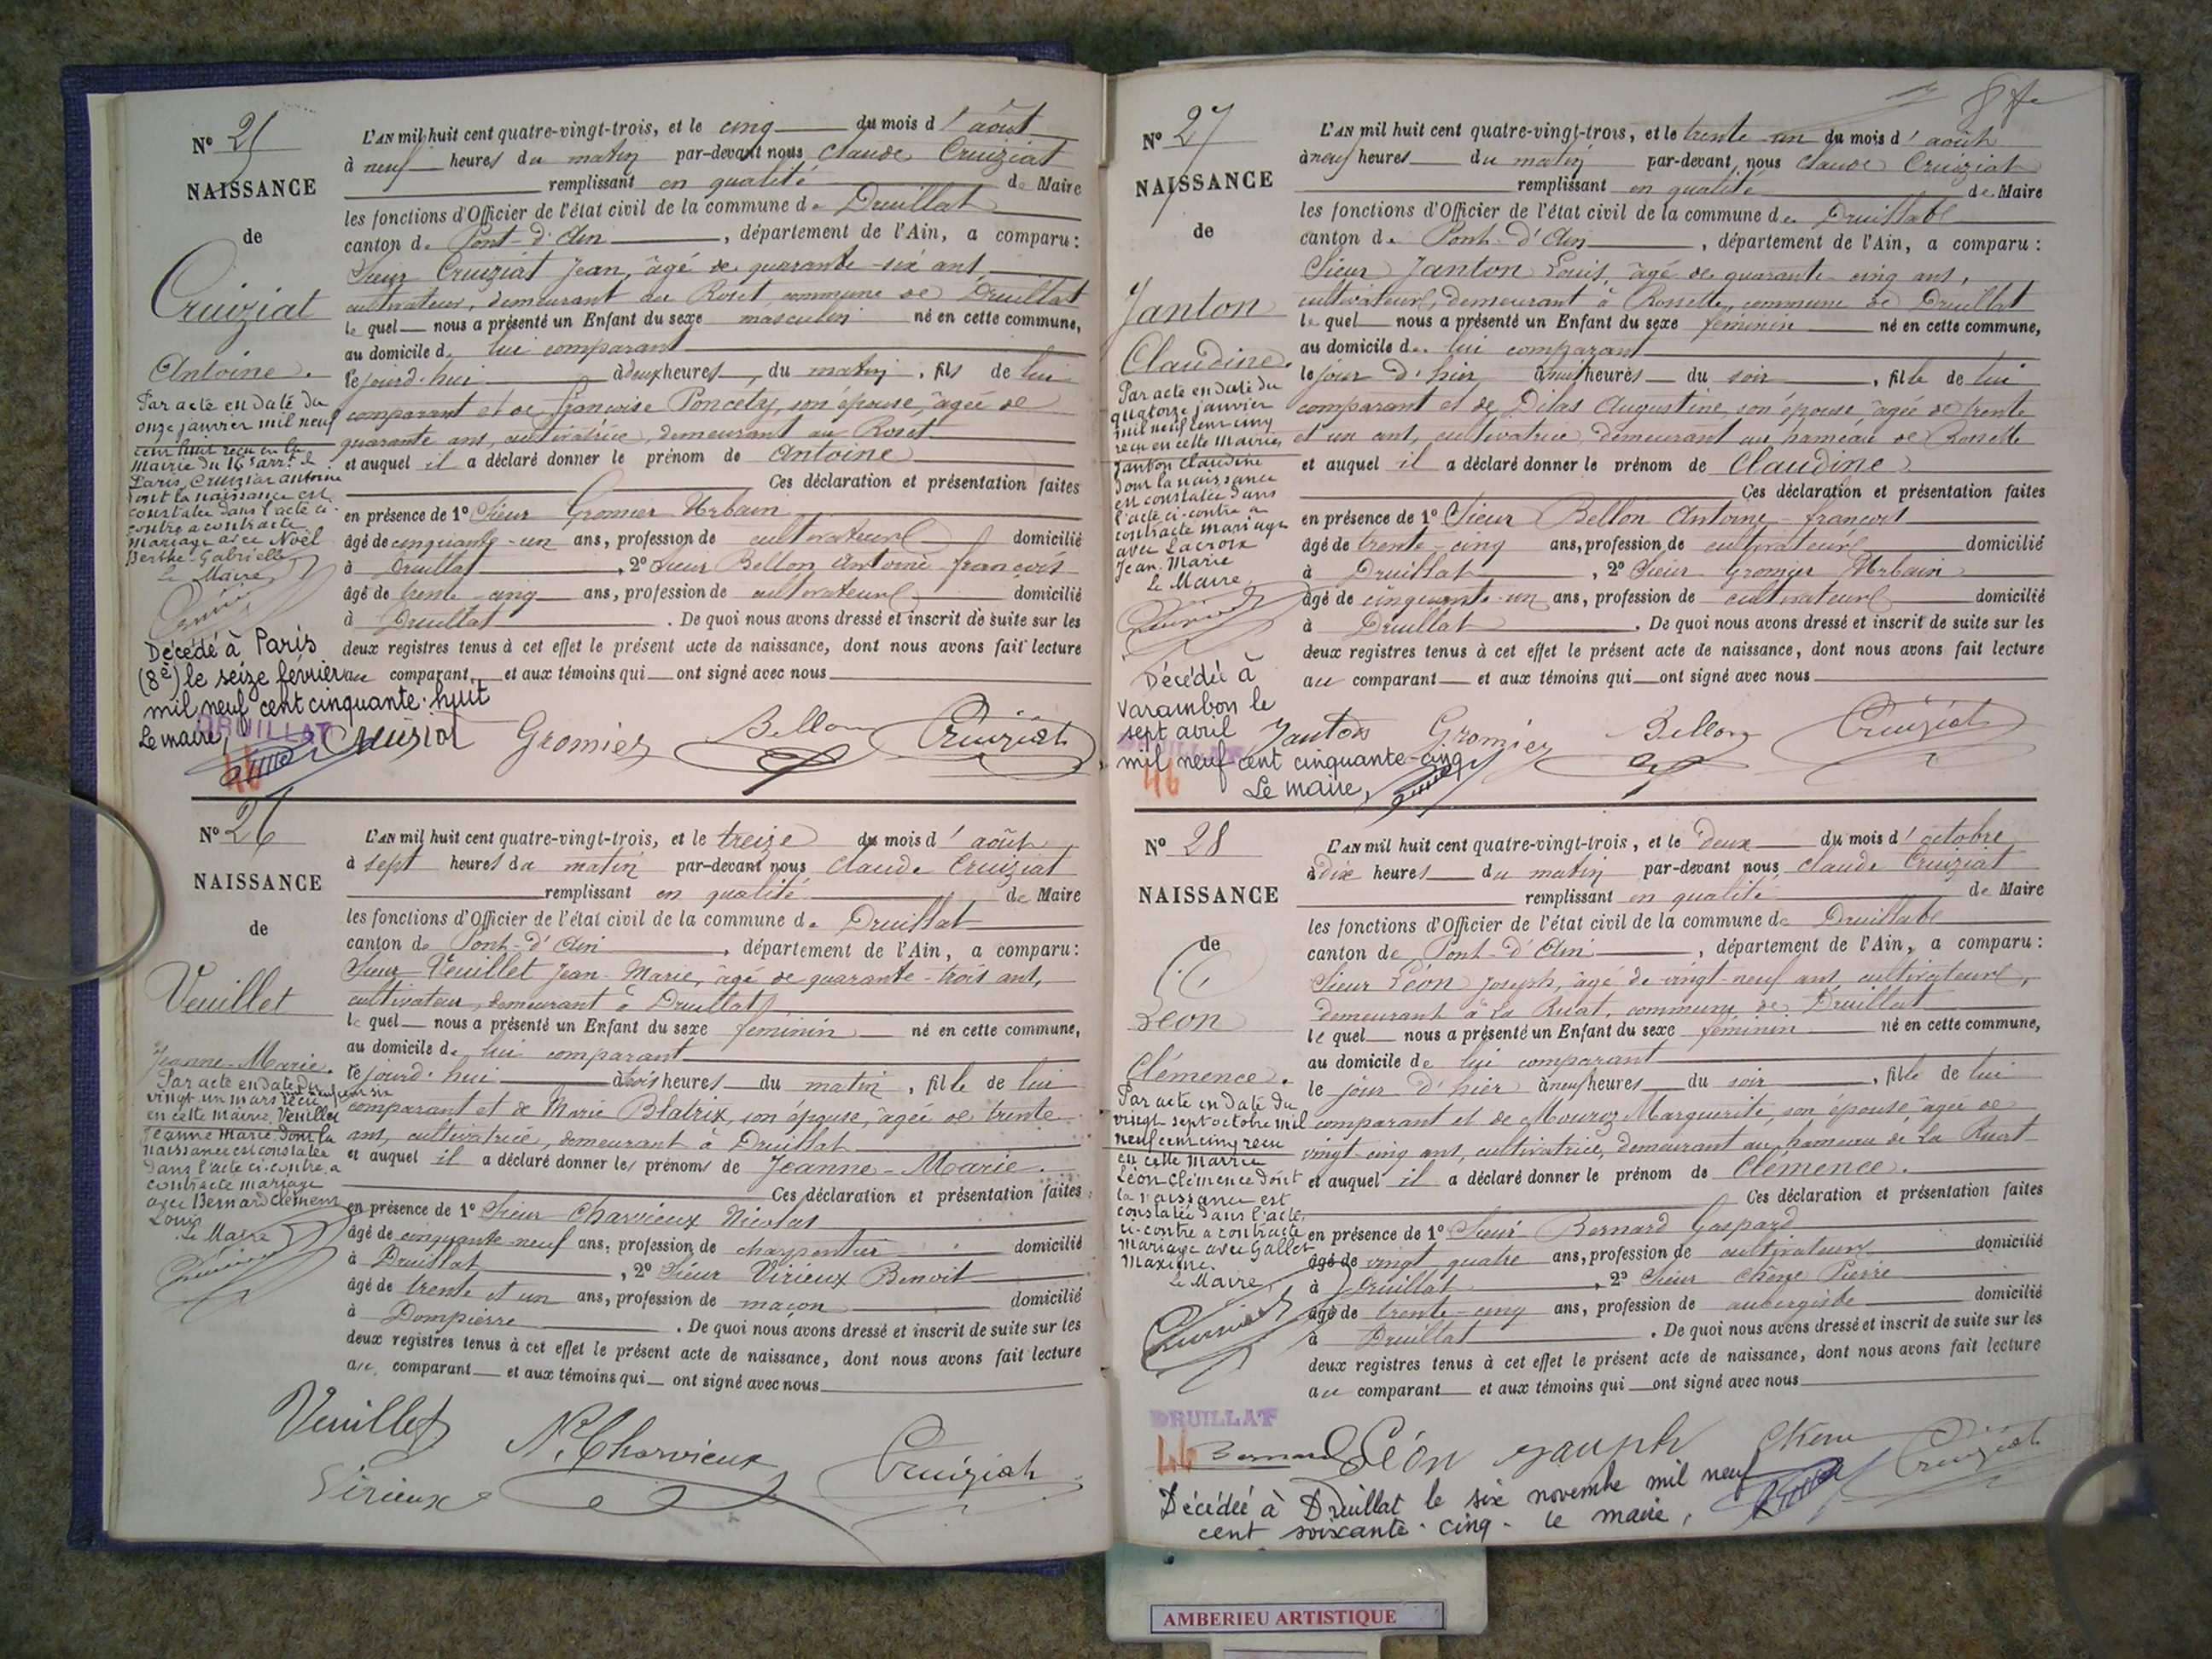 Nº 25
NAISSANCE
de
Cruiziat
Antoine.
Par acte en date du
onze janvier mil neuf
cent huit reçu en la
Mairie du 16e arrt de
Paris, Cruiziat antoine
dont la naissance est
constatée dans l'acte ci-
contre a contracté
mariage avec Noël
Berthe-Gabrielle
Le Maire
Décédé à Paris
(8e) le seize février
mil neuf cent cinquante-huit
Le maire,
DRUILLAT
46
L'AN mil huit cent quatre-vingt-trois, et le cinq du mois d'août
à neuf heures du matin par-devant nous Claude Cruiziat
remplissant en qualité de Maire
les fonctions d'Officier de l'état civil de la commune de Druillat
canton de Pont-d'Ain, département de l'Ain, a comparu:
Sieur Cruiziat Jean, âgé de quarante-six ans,
cultivateur, demeurant au Roset, commune de Druillat
lequel nous a présenté un Enfant du sexe masculin né en cette commune,
au domicile de lui comparant
cejourd'hui à deux heures, du matin, fils de lui
comparant et de Françoise Poncety, son épouse, âgée de
quarante ans, cultivatrice, demeurant au Roset.
et auquel il a déclaré donner le prénom de Antoine
Ces déclaration et présentation faites
en présence de 1º Sieur Gromier Urbain
âgé de cinquante-un ans, profession de cultivateur domicilié
à Druillat, 2º Sieur Bellon Antoine-françois
âgé de trente-cinq ans, profession de cultivateur domicilié
à Druillat. De quoi nous avons dressé et inscrit de suite sur les
deux registres tenus à cet effet le présent acte de naissance, dont nous avons fait lecture
au comparant et aux témoins qui ont signé avec nous
Cruiziat Gromier Bellon Cruiziat
Nº 26
NAISSANCE
de
Veuillet
Jeanne-Marie.
Par acte en date du
vingt un mars mil neuf cent six reçu
en cette mairie Veuillet
Jeanne Marie dont la
naissance est constatée
dans l'acte ci-contre a
contracté mariage
avec Bernard Clément
Louis
Le Maire
L'AN mil huit cent quatre-vingt-trois, et le treize du mois d'août
à sept heures du matin par-devant nous Claude Cruiziat
remplissant en qualité de Maire
les fonctions d'Officier de l'état civil de la commune de Druillat
canton de Pont-d'Ain, département de l'Ain, a comparu:
Sieur Veuillet Jean-Marie, âgé de quarante-trois ans,
cultivateur, demeurant à Druillat
lequel nous a présenté un Enfant du sexe féminin né en cette commune,
au domicile de lui comparant
cejourd'hui à trois heures du matin, fille de lui
comparant et de Marie Blatrix, son épouse, âgée de trente
ans, cultivatrice, demeurant à Druillat
et auquel il a déclaré donner les prénoms de Jeanne-Marie.
Ces déclaration et présentation faites
en présence de 1º Sieur Charvieux Nicolas
âgé de cinquante-neuf ans, profession de charpentier domicilié
à Druillat, 2º Sieur Virieux Benoit
âgé de trente et un ans, profession de maçon domicilié
à Dompierre. De quoi nous avons dressé et inscrit de suite sur les
deux registres tenus à cet effet le présent acte de naissance, dont nous avons fait lecture
au comparant et aux témoins qui ont signé avec nous
Veuillet N. Charvieux Cruiziat
Virieux
Nº 27
NAISSANCE
de
Janton
Claudine.
Par acte en date du
quatorze janvier
mil neuf cent cinq
reçu en cette Mairie
Janton Claudine
dont la naissance
est constatée dans
l'acte ci-contre a
contracté mariage
avec Lacroix
Jean-Marie
Le Maire
Décédée à
Varambon le
sept avril
mil neuf cent cinquante-cinq
Le maire,
DRUILLAT
46
L'AN mil huit cent quatre-vingt-trois, et le trente-un du mois d'août
à neuf heures du matin par-devant nous Claude Cruiziat
remplissant en qualité de Maire
les fonctions d'Officier de l'état civil de la commune de Druillat
canton de Pont-d'Ain, département de l'Ain, a comparu:
Sieur Janton Louis, âgé de quarante-cinq ans,
cultivateur, demeurant à Rossette, commune de Druillat
lequel nous a présenté un Enfant du sexe féminin né en cette commune,
au domicile de lui comparant
le jour d'hier à neuf heures du soir, fille de lui
comparant et de Dilas Augustine, son épouse âgée de trente
et un ans, cultivatrice, demeurant au hameau de Rossette
et auquel il a déclaré donner le prénom de Claudine
Ces déclaration et présentation faites
en présence de 1º Sieur Bellon Antoine-françois
âgé de trente-cinq ans, profession de cultivateur domicilié
à Druillat, 2º Sieur Gromier Urbain
âgé de cinquante-un ans, profession de cultivateur domicilié
à Druillat. De quoi nous avons dressé et inscrit de suite sur les
deux registres tenus à cet effet le présent acte de naissance, dont nous avons fait lecture
au comparant et aux témoins qui ont signé avec nous
Janton Gromier Bellon Cruiziat
Nº 28
NAISSANCE
de
Léon
Clémence.
Par acte en date du
vingt sept octobre mil
neuf cent cinq reçu
en cette Mairie
Léon Clémence dont
la naissance est
constatée dans l'acte
ci-contre a contracté
mariage avec Gallet
Maxime.
Le Maire,
L'AN mil huit cent quatre-vingt-trois, et le deux du mois d'octobre
à dix heures du matin par-devant nous Claude Cruiziat
remplissant en qualité de Maire
les fonctions d'Officier de l'état civil de la commune de Druillat
canton de Pont-d'Ain, département de l'Ain, a comparu:
Sieur Léon Joseph, âgé de vingt-neuf ans, cultivateur,
demeurant à La Ruat, commune de Druillat
lequel nous a présenté un Enfant du sexe féminin né en cette commune,
au domicile de lui comparant
le jour d'hier à neuf heures du soir, fille de lui
comparant et de Mouroz Marguerite, son épouse âgée de
vingt-cinq ans, cultivatrice, demeurant au hameau de La Ruat
et auquel il a déclaré donner le prénom de Clémence.
Ces déclaration et présentation faites
en présence de 1º Sieur Bernard Gaspard
âgé de vingt quatre ans, profession de cultivateur domicilié
à Druillat, 2º Sieur Chêne Pierre
âgé de trente-cinq ans, profession de aubergiste domicilié
à Druillat. De quoi nous avons dressé et inscrit de suite sur les
deux registres tenus à cet effet le présent acte de naissance, dont nous avons fait lecture
au comparant et aux témoins qui ont signé avec nous
DRUILLAT
46 Bernard Léon Chêne Cruiziat
Décédée à Druillat le six novembre mil neuf
cent soixante-cinq. le maire,
AMBERIEU ARTISTIQUE